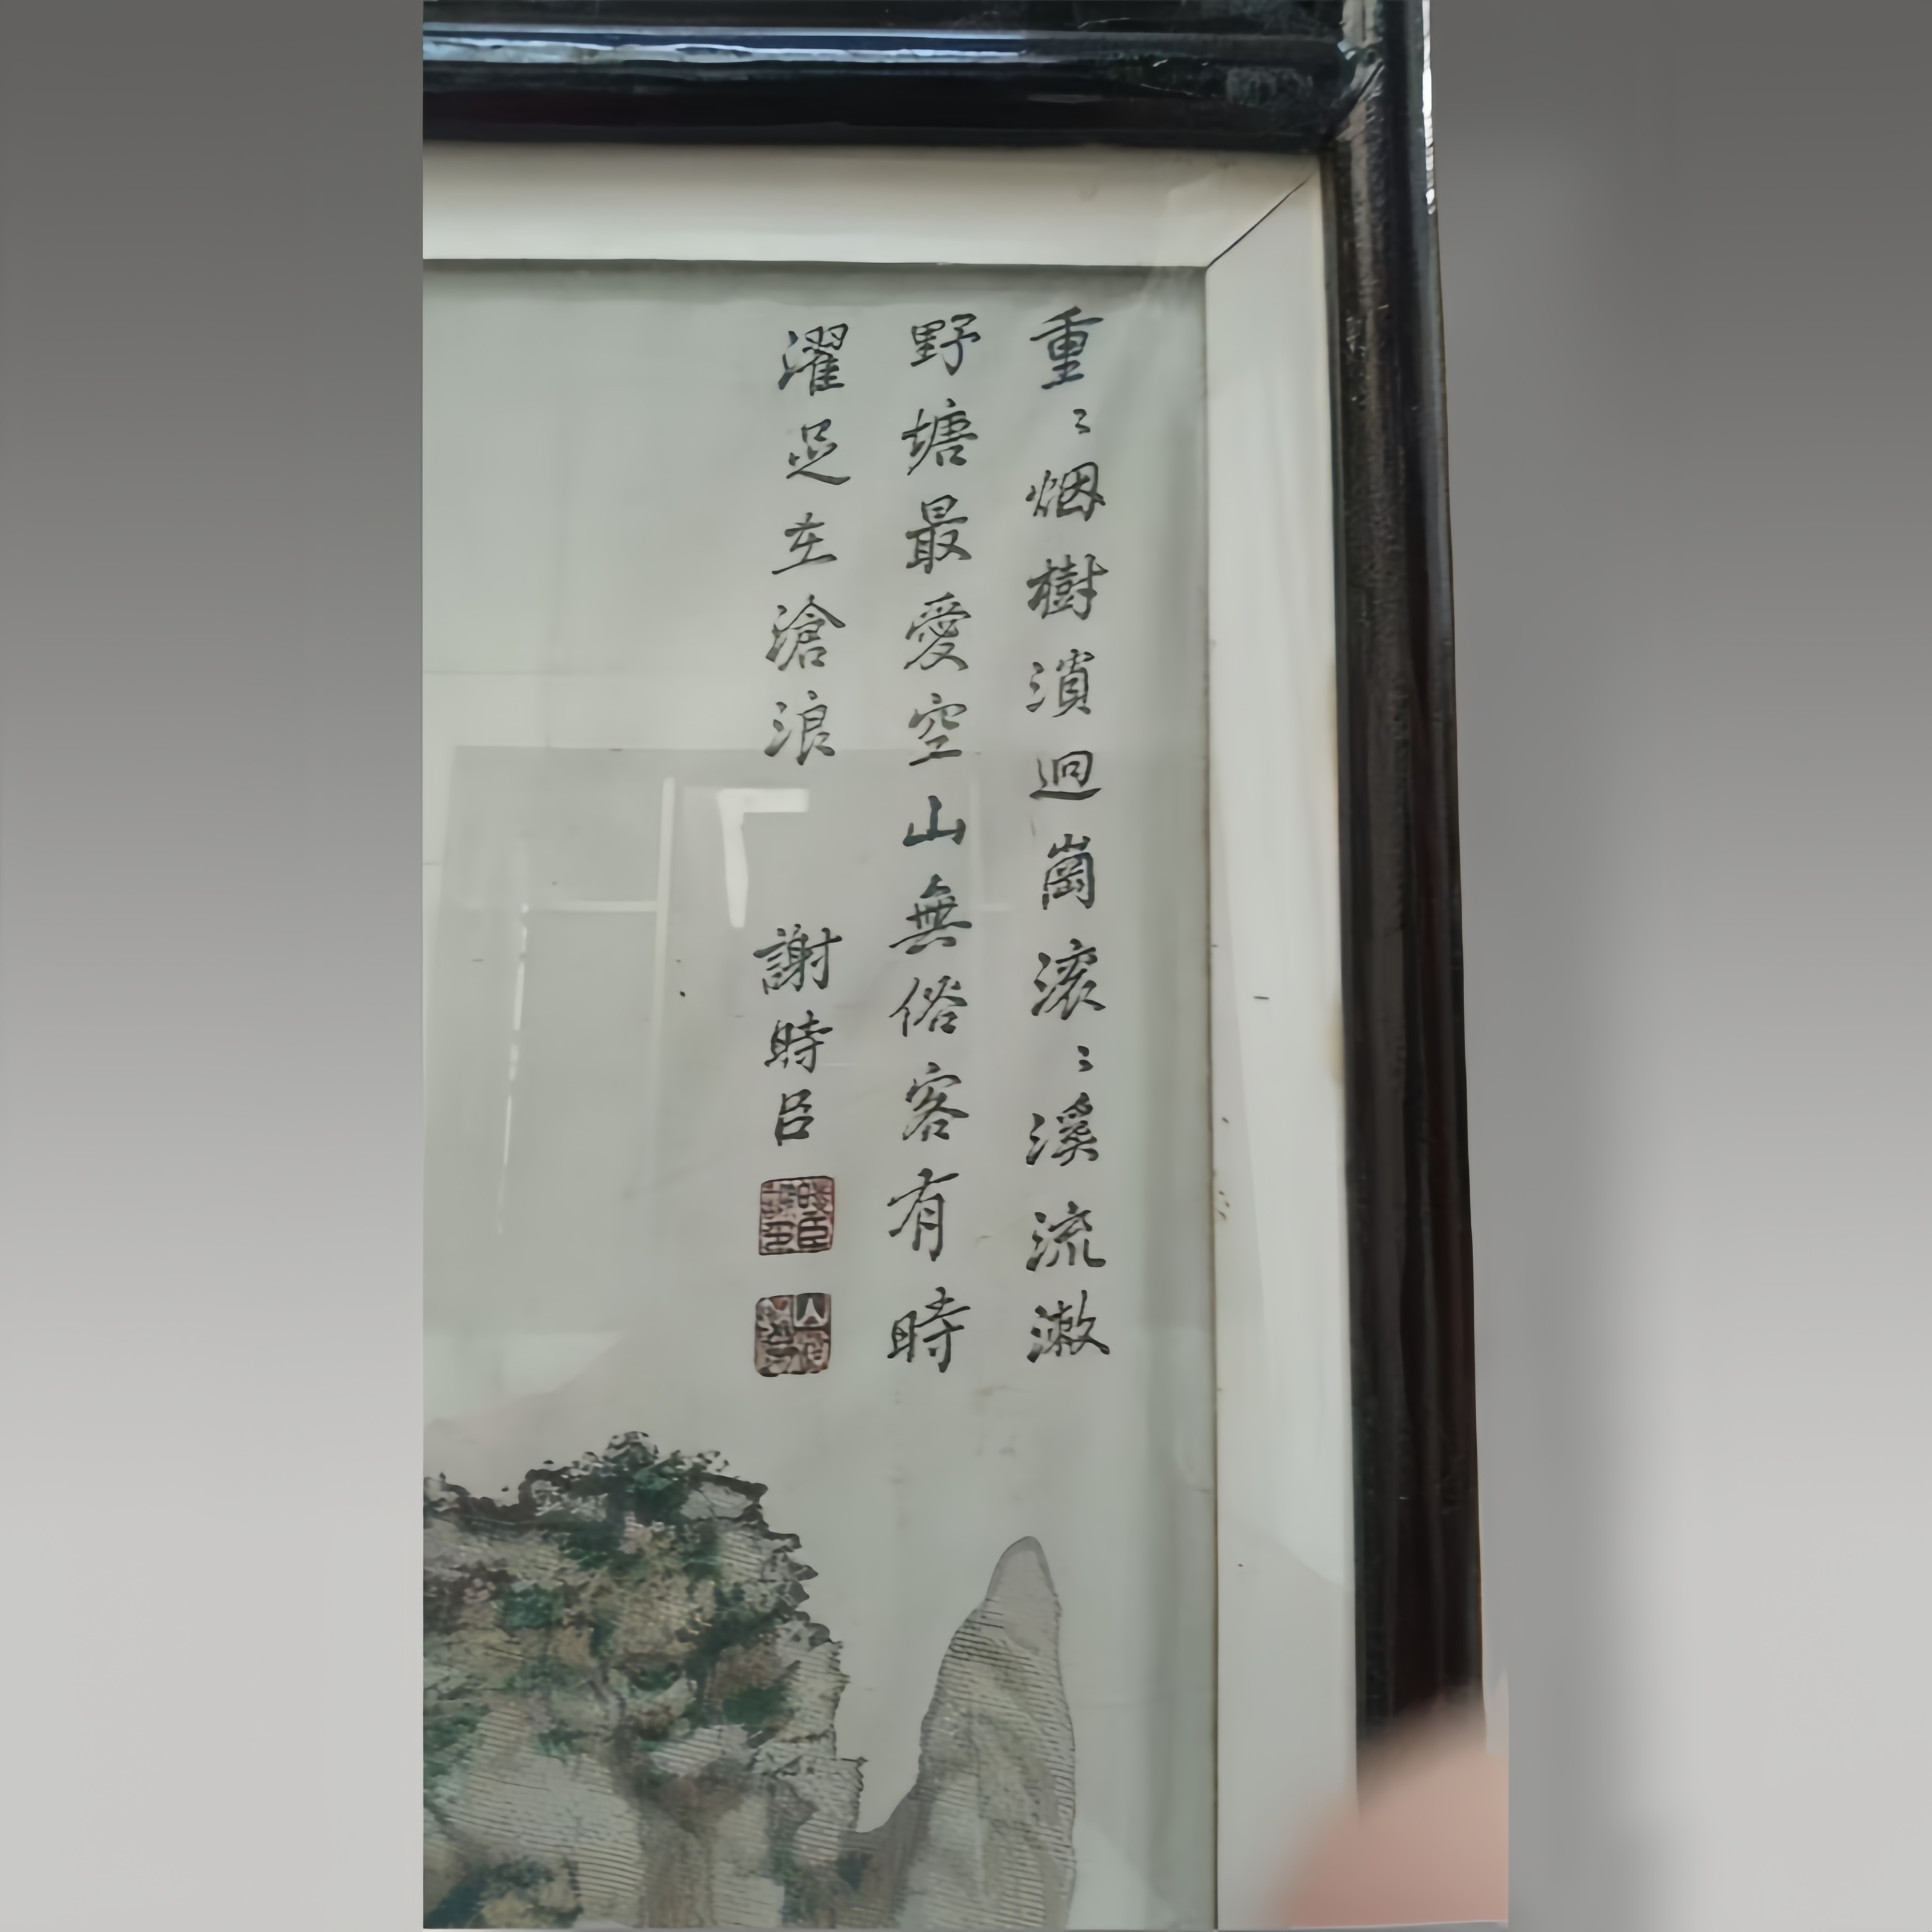 重〻烟樹濱迴崗滾〻溪流漱
野塘最愛空山無俗客有時
濯足在滄浪
謝時臣